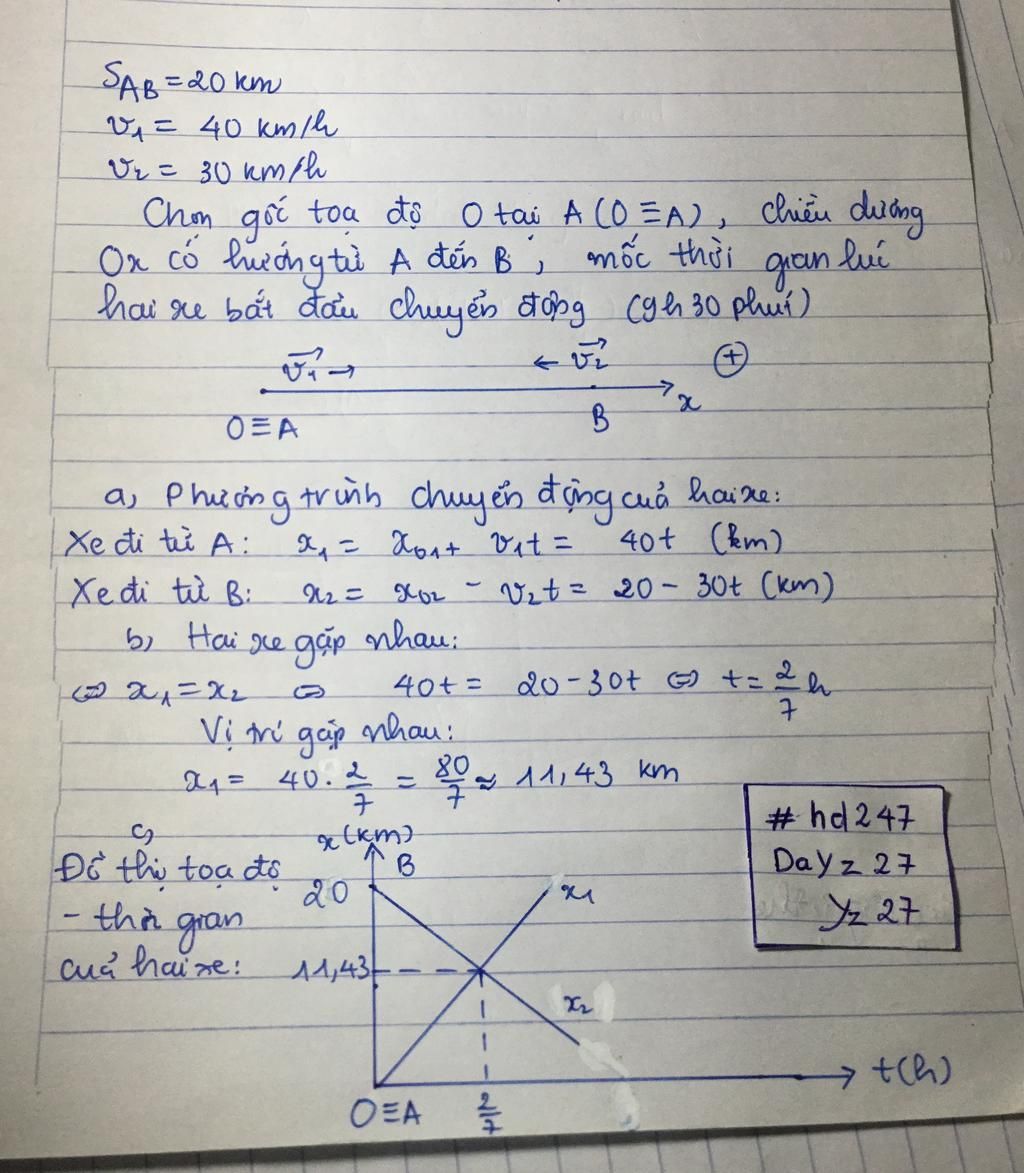 S_AB = 20 km
v₁ = 40 km/h
v₂ = 30 km/h
Chọn gốc toạ độ O tại A (O ≡ A), chiều dương
Ox có hướng từ A đến B, mốc thời gian lúc
hai xe bắt đầu chuyển động (9h 30 phút)
v₁→ → ← v₂→ (+)
O ≡ A B x
a, Phương trình chuyển động của hai xe:
Xe đi từ A: x₁ = x₀₁ + v₁t = 40t (km)
Xe đi từ B: x₂ = x₀₂ - v₂t = 20 - 30t (km)
b, Hai xe gặp nhau:
⇔ x₁ = x₂ ⇔ 40t = 20 - 30t ⇔ t = 2/7 h
Vị trí gặp nhau:
x₁ = 40. 2/7 = 80/7 ≈ 11,43 km
# hd247
Dayz 27
yz 27
c,
Đồ thị toạ độ
- thời gian
của hai xe:
x (km)
B
20
x₁
11,43
x₂
t (h)
O ≡ A 2/7